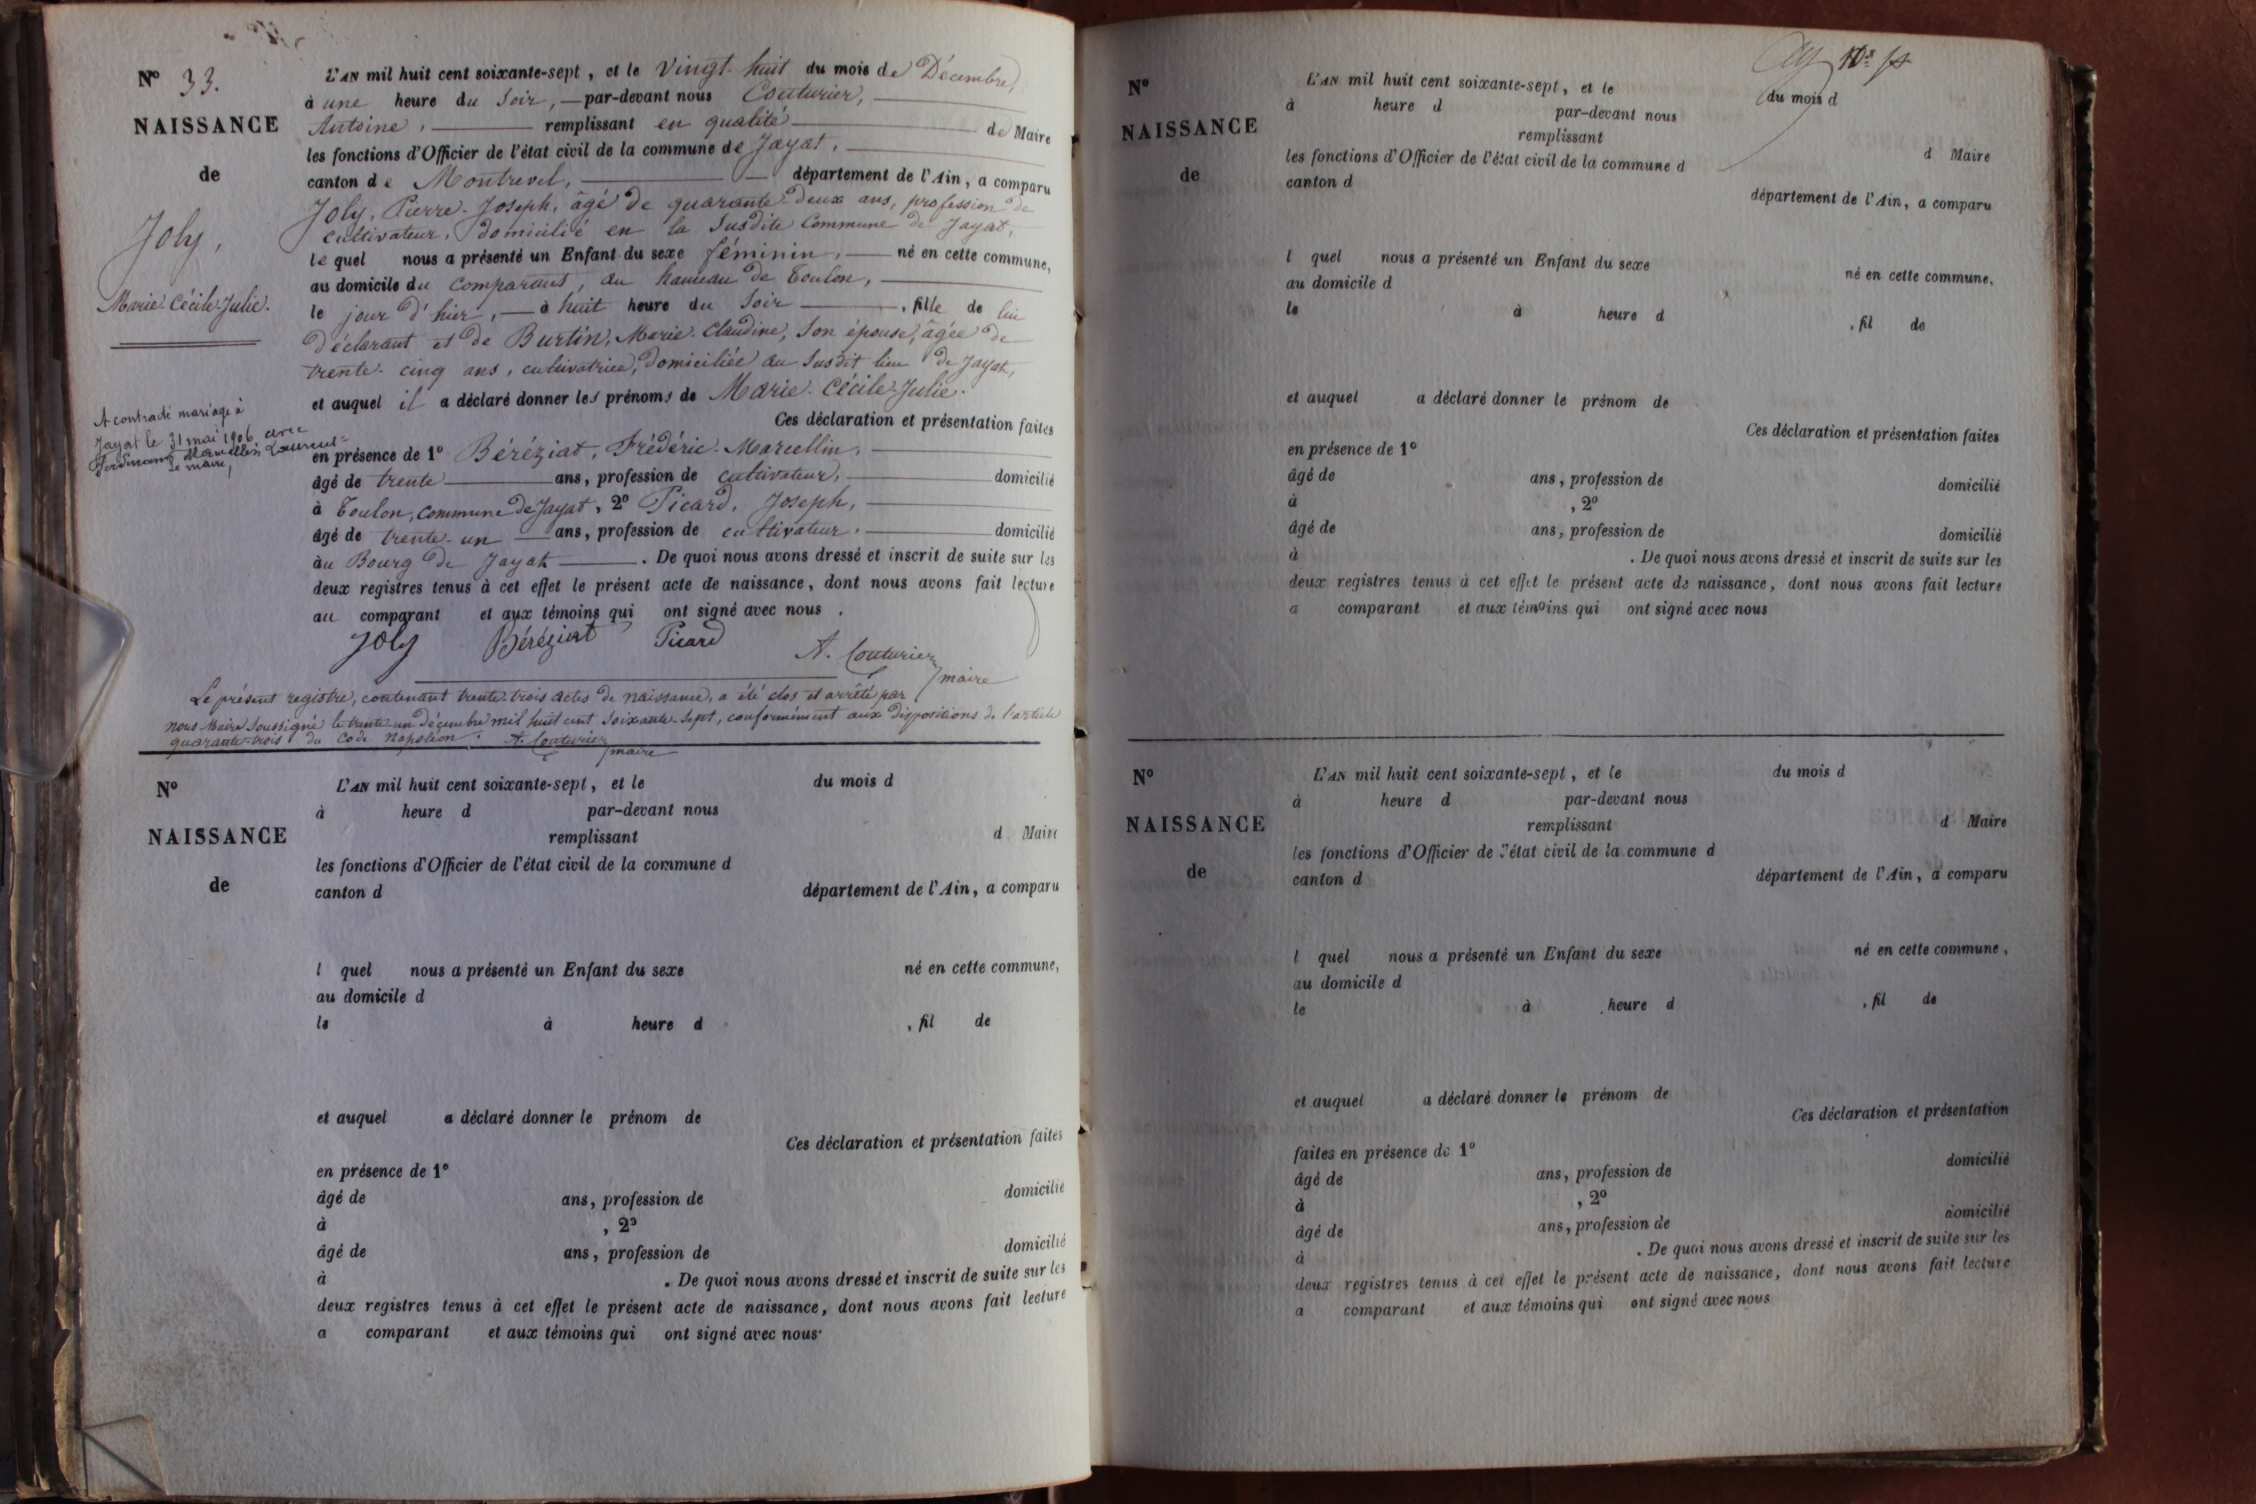 N° 33.
NAISSANCE
de
Joly,
Marie-Cécile-Julie.
A contracté mariage à
Jayat le 31 mai 1906 avec
Ferdinand Marcellin Laurent
Le maire,
L'AN mil huit cent soixante-sept, et le vingt-huit du mois de Décembre,
à une heure du soir, par-devant nous Couturier,
Antoine, remplissant en qualité de Maire
les fonctions d'Officier de l'état civil de la commune de Jayat,
canton de Montrevel, département de l'Ain, a comparu
Joly, Pierre-Joseph, âgé de quarante-deux ans, profession de
cultivateur, domicilié en la susdite Commune de Jayat,
le quel nous a présenté un Enfant du sexe féminin, né en cette commune,
au domicile du comparant, au hameau de Toulon,
le jour d'hier, à huit heure du soir, fille de lui
déclarant et de Burtin, Marie-Claudine, son épouse, âgée de
trente-cinq ans, cultivatrice, domiciliée au susdit lieu de Jayat,
et auquel il a déclaré donner les prénoms de Marie-Cécile-Julie.
Ces déclaration et présentation faites
en présence de 1° Béréziat, Frédéric-Marcellin,
âgé de trente ans, profession de cultivateur, domicilié
à Toulon, commune de Jayat, 2° Picard, Joseph,
âgé de trente-un ans, profession de cultivateur, domicilié
au Bourg de Jayat. De quoi nous avons dressé et inscrit de suite sur les
deux registres tenus à cet effet le présent acte de naissance, dont nous avons fait lecture
au comparant et aux témoins qui ont signé avec nous.
Joly Béréziat Picard A. Couturier
maire
Le présent registre, contenant trente-trois actes de naissance, a été clos et arrêté par
nous Maire soussigné le trente-un Décembre mil huit cent soixante-sept, conformément aux dispositions de l'article
quarante-trois du Code Napoléon. A. Couturier
maire
N°
NAISSANCE
de
L'AN mil huit cent soixante-sept, et le du mois d
à heure d par-devant nous
remplissant d Maire
les fonctions d'Officier de l'état civil de la commune d
canton d département de l'Ain, a comparu
l quel nous a présenté un Enfant du sexe né en cette commune,
au domicile d
le à heure d , fil de
et auquel a déclaré donner le prénom de
Ces déclaration et présentation faites
en présence de 1°
âgé de ans, profession de domicilié
à , 2°
âgé de ans, profession de domicilié
à . De quoi nous avons dressé et inscrit de suite sur les
deux registres tenus à cet effet le présent acte de naissance, dont nous avons fait lecture
a comparant et aux témoins qui ont signé avec nous
N°
NAISSANCE
de
L'AN mil huit cent soixante-sept, et le du mois d
à heure d par-devant nous
remplissant d Maire
les fonctions d'Officier de l'état civil de la commune d
canton d département de l'Ain, a comparu
l quel nous a présenté un Enfant du sexe né en cette commune.
au domicile d
le à heure d , fil de
et auquel a déclaré donner le prénom de
Ces déclaration et présentation faites
en présence de 1°
âgé de ans, profession de domicilié
à , 2°
âgé de ans, profession de domicilié
à . De quoi nous avons dressé et inscrit de suite sur les
deux registres tenus à cet effet le présent acte de naissance, dont nous avons fait lecture
a comparant et aux témoins qui ont signé avec nous
N°
NAISSANCE
de
L'AN mil huit cent soixante-sept, et le du mois d
à heure d par-devant nous
remplissant d Maire
les fonctions d'Officier de l'état civil de la commune d
canton d département de l'Ain, a comparu
l quel nous a présenté un Enfant du sexe né en cette commune,
au domicile d
le à heure d , fil de
et auquel a déclaré donner le prénom de
Ces déclaration et présentation
faites en présence de 1°
âgé de ans, profession de domicilié
à , 2°
âgé de ans, profession de domicilié
à . De quoi nous avons dressé et inscrit de suite sur les
deux registres tenus à cet effet le présent acte de naissance, dont nous avons fait lecture
a comparant et aux témoins qui ont signé avec nous